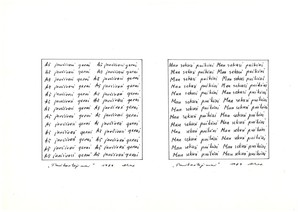 Aš jaučiuosi gerai Aš jaučiuosi gerai
Aš jaučiuosi gerai Aš jaučiuosi gerai
Aš jaučiuosi gerai Aš jaučiuosi gerai
Aš jaučiuosi gerai Aš jaučiuosi gerai
Aš jaučiuosi gerai Aš jaučiuosi gerai
Aš jaučiuosi gerai Aš jaučiuosi gerai
Aš jaučiuosi gerai Aš jaučiuosi gerai
Aš jaučiuosi gerai Aš jaučiuosi gerai
Aš jaučiuosi gerai Aš jaučiuosi gerai
Aš jaučiuosi gerai Aš jaučiuosi gerai
Aš jaučiuosi gerai Aš jaučiuosi gerai
Aš jaučiuosi gerai Aš jaučiuosi gerai
Man sekasi puikiai Man sekasi puikiai
Man sekasi puikiai Man sekasi puikiai
Man sekasi puikiai Man sekasi puikiai
Man sekasi puikiai Man sekasi puikiai
Man sekasi puikiai Man sekasi puikiai
Man sekasi puikiai Man sekasi puikiai
Man sekasi puikiai Man sekasi puikiai
Man sekasi puikiai Man sekasi puikiai
Man sekasi puikiai Man sekasi puikiai
Man sekasi puikiai Man sekasi puikiai
Man sekasi puikiai Man sekasi puikiai
Man sekasi puikiai Man sekasi puikiai